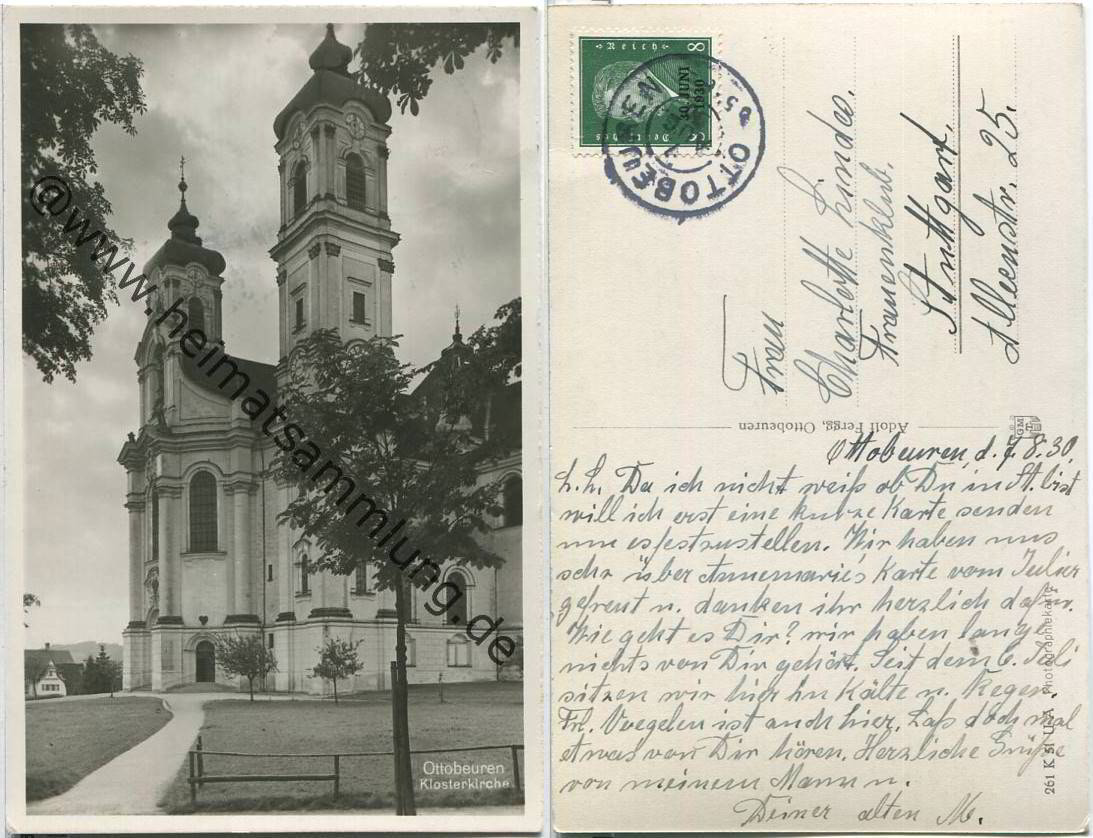 @www.heimatsammlung.de
Ottobeuren
Klosterkirche
Deutsches Reich
8
30. JUNI
1930
OTTOBEUREN
Frau
Charlotte Linder
Frauenklub.
Stuttgart
Alleenstr. 25.
Adolf Fergg, Ottobeuren
GM
Ottobeuren, d. 7.8.30.
L. L. Da ich nicht weiß ob Du in St. bist
will ich erst eine kurze Karte senden
um es festzustellen. Wir haben uns
sehr über Annemarie's Karte vom Julier
gefreut u. danken ihr herzlich dafür.
Wie geht es Dir? wir haben lange
nichts von Dir gehört. Seit dem 6. Juli
sitzen wir hier in Kälte u. Regen.
Frl. Voegelen ist auch hier. Laß doch mal
etwas von Dir hören. Herzliche Grüße
von meinem Mann u.
Deiner alten M.
261 K 51 U/A Photographiekarte